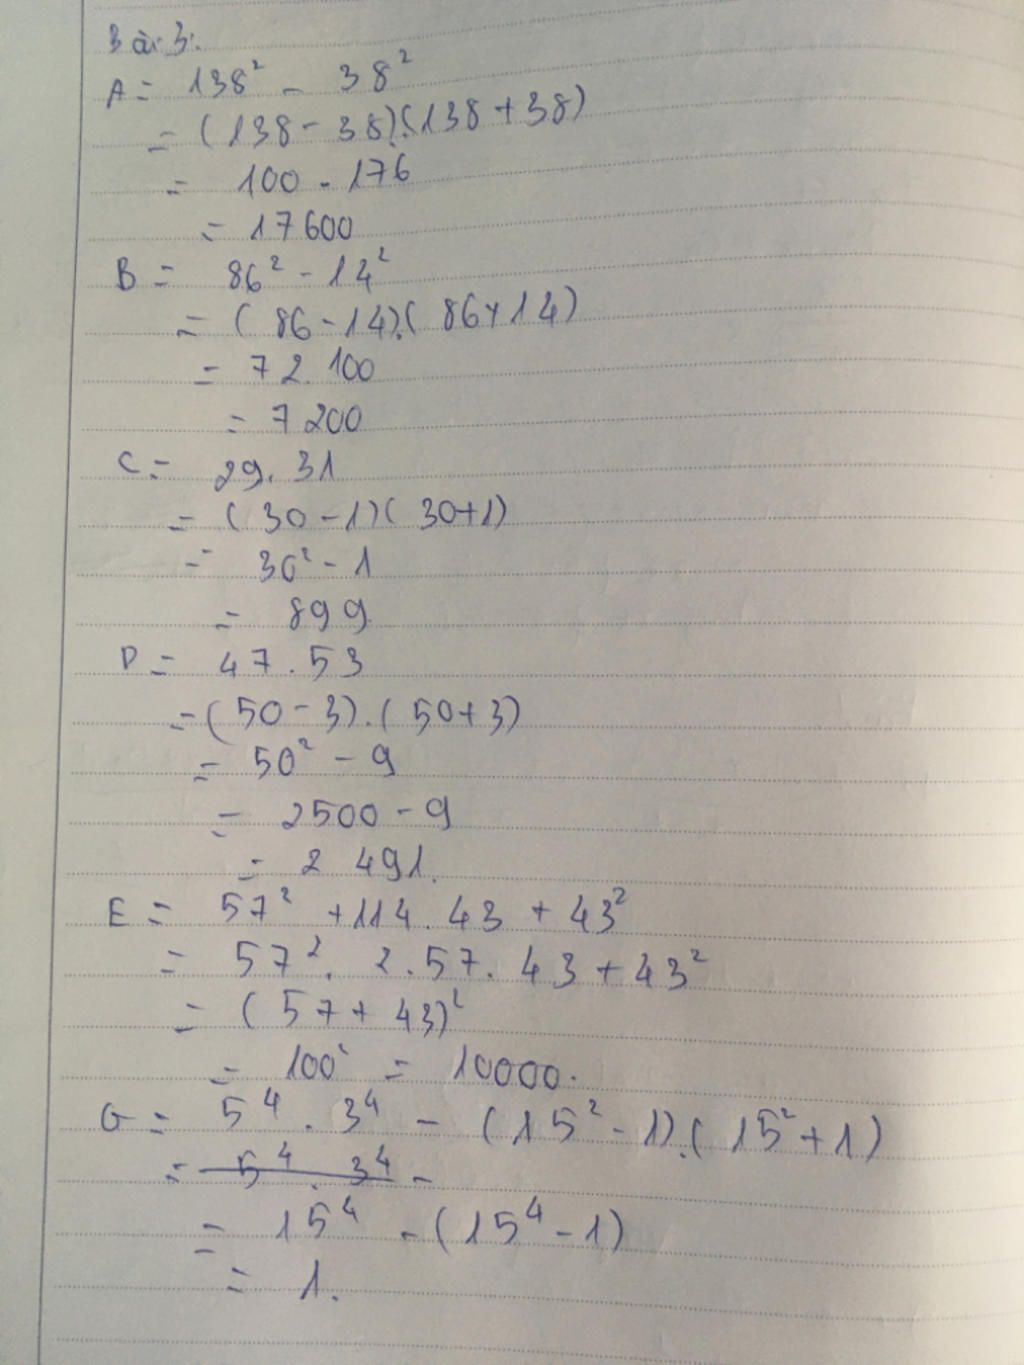 Bài 3:
A = 138² - 38²
= (138 - 38).(138 + 38)
= 100 . 176
= 17600
B = 86² - 14²
= (86 - 14).(86 + 14)
= 72.100
= 7200
C = 29.31
= (30 - 1)(30+1)
= 30² - 1
= 899
D = 47.53
= (50 - 3).(50+3)
= 50² - 9
= 2500 - 9
= 2491.
E = 57² + 114.43 + 43²
= 57². 2.57.43 + 43²
= (57 + 43)²
= 100² = 10000.
G = 5⁴ . 3⁴ - (15² - 1).(15² + 1)
= 5⁴ . 3⁴ -
= 15⁴ - (15⁴ - 1)
= 1.